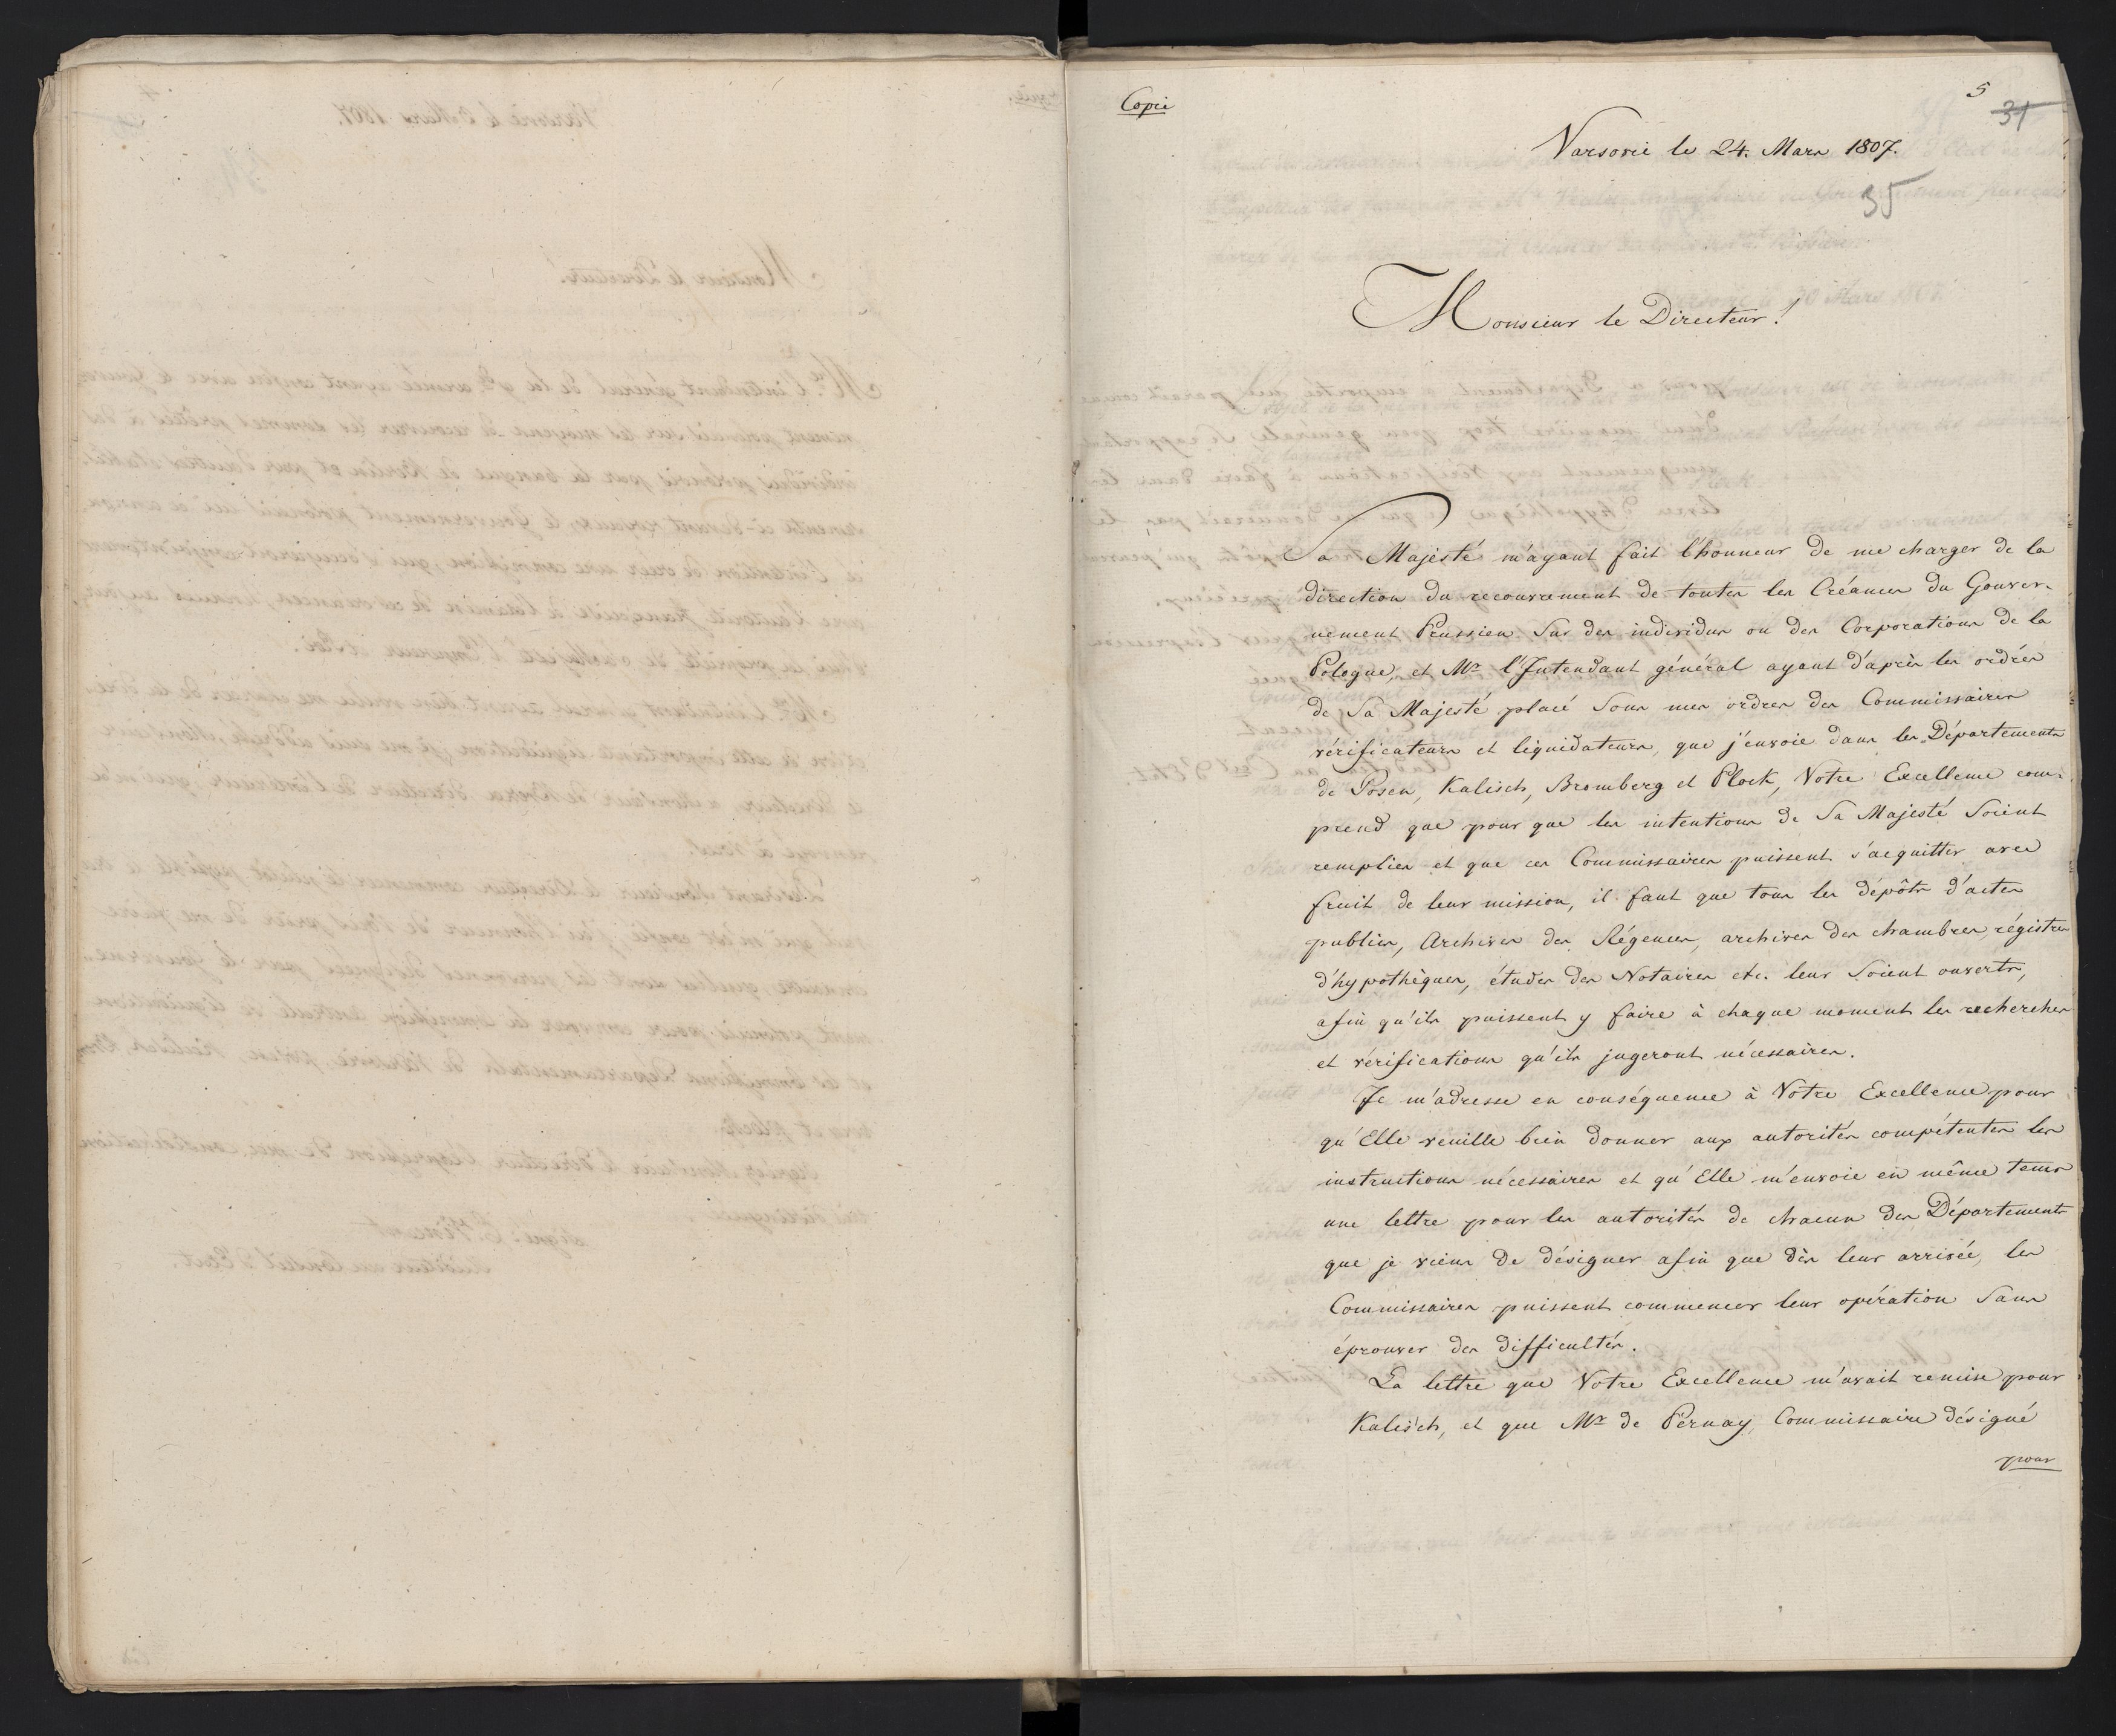 Copie
5
31
Varsovie le 24. Mars 1807.
35
Monsieur le Directeur!
Sa Majesté m'ayant fait l'honneur de me charger de la
direction du recouvrement de toutes les Créances du Gouver-
nement Prussien Sur des individus ou des Corporations de la
Pologne, et Mr. l'Intendant général ayant d'après les ordres
de Sa Majesté placé Sous mes ordres des Commissaires
vérificateurs et liquidateurs, que j'envoie dans les Départements
de Posen, Kalisch, Bromberg et Plock, Votre Excellence com-
prend que pour que les intentions de Sa Majesté Soient
remplies et que ces Commissaires puissent s'acquitter avec
fruit de leur mission, il faut que tous les dépôts d'actes
publics, Archives des Régences, archives des chambres, régistres
d'hypothèques, études des Notaires etc. leur Soient ouverts,
afin qu'ils puissent y faire à chaque moment les recherches
et vérifications qu'ils jugeront nécessaires.
Je m'adresse en conséquence à Votre Excellence pour
qu'Elle veuille bien donner aux autorités compétentes les
instructions nécessaires et qu'Elle m'envoie en même tems
une lettre pour les autorités de chacun des Départements
que je viens de désigner afin que dès leur arrivée, les
Commissaires puissent commencer leur opération Sans
éprouver des difficultés.
La lettre que Votre Excellence m'avait remise pour
Kalisch, et que Mr. de Pernay, Commissaire désigné
pour